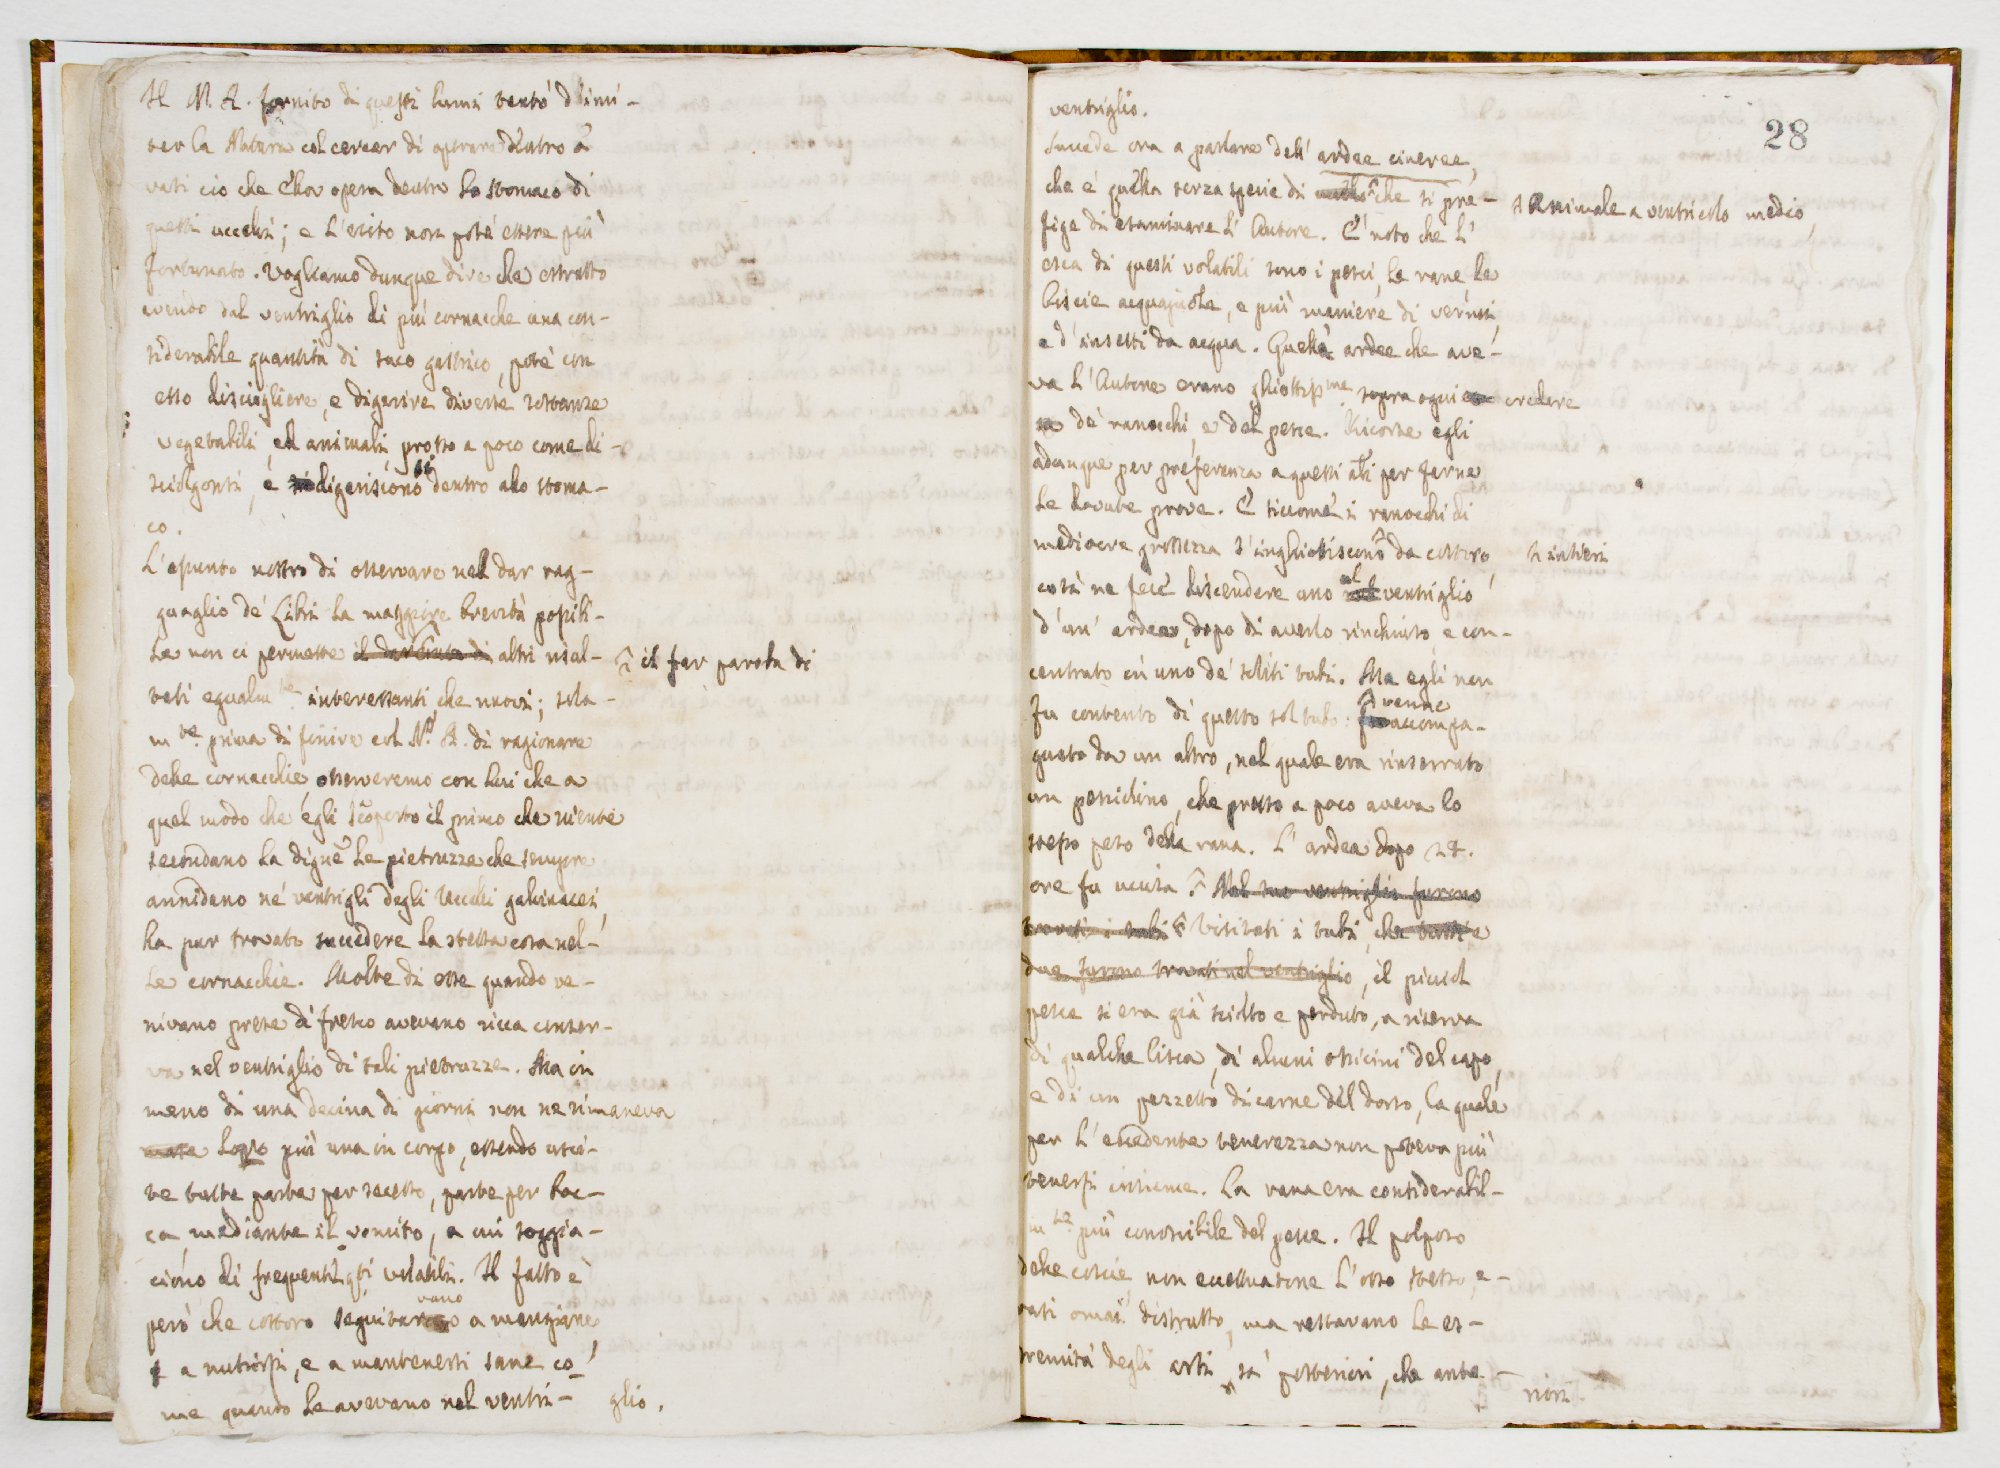 Il N. A. fornito di questi lumi tentò d'imi-
tar la Natura col cercar di operare dentro a
vasi ciò che ella opera dentro lo stomaco di
questi uccelli; e l'esito non potè essere più
fortunato. Vogliamo dunque dire che estratto
avendo dal ventriglio di più cornacche una con-
siderabile quantità di suco gastrico, potè con
esso disciogliere, e digerire diverse sostanze
vegetabili, ed animali presso a poco come di-
sciolgonsi, e si digeriscono dentro allo stoma-
co.
L'assunto nostro di osservare nel dar rag-
guaglio de' Libri la maggiore brevità possibi-
le non ci permette il far parola di altri risul-
tati egualm.te interessanti, che nuovi; sola-
m.te prima di finire col N.o A. di ragionare
delle cornacchie osserveremo con lui che a
quel modo che egli scoperto il primo che niente
secondano la dig.ne le pietruzze che sempre
annidano ne' ventrigli degli Uccelli galinacei,
ha pur trovato succedere la stessa cosa nel-
le cornacchie. Molte di esse quando ve-
nivano prese di fresco avevano ricca conser-
va nel ventriglio di tali pietruzze. Ma in
meno di una decina di giorni non ne rimaneva
loro più una in corpo, essendo usci-
te tutte parte per secesso, parte per boc-
ca mediante il vomito, a cui soggia-
ciono di frequente q.ti volatili. Il fatto è
però che costoro seguitavano a mangiare
a nutrirsi, e a mantenersi sane co-
me quando le avevano nel ventri-glio.
28
ventriglio.
Succede ora a parlare dell' ardee cineree,
che è quella terza spezie di Animale a ventricolo medio, che si pre-
fige di esaminare l'Autore. È noto che l'
esca di questi volatili sono i pesci, le rane le
biscie acquajuole, e più maniere di vermi,
e d'insetti da acqua. Quelle ardee che ave-
va l'Autore erano ghiottiss.me sopra ogni credere
de' ranocchi, e del pesce. Ricorse egli
adunque per preferenza a questi cibi per farne
le dovute prove. E siccome i ranocchi di
mediocre grossezza s'inghiottiscono da costoro interi
così ne fece discendere uno nel ventriglio
d'un' ardea, dopo di averlo rinchiuso, e con-
centrato in uno de' soliti tubi. Ma egli non
fu contento di questo sol tubo: venne accompa-
gnato da un altro, nel quale era rinserrato
un pesciolino, che presso a poco aveva lo
stesso peso della rana. L'ardea dopo 24.
ore fu uccisa. Nel suo ventriglio furono
trovati i tubi Visitati i tubi, che tutti e
due furono trovati nel ventriglio, il piccol
pesce si era già sciolto e perduto, a riserva
di qualche lisca, di alcuni ossicini del capo,
e di un pezzetto di carne del dorso, la quale
per l'eccedente tenerezza non poteva più
tenersi insieme. La rana era considerabil-
m.te più conoscibile del pesce. Il polposo
delle coscie, non eccettuatone l'osso stesso, e-
rasi omai distrutto, ma restavano le es-
tremità degli arti, sì posteriori, che ante-
riori.